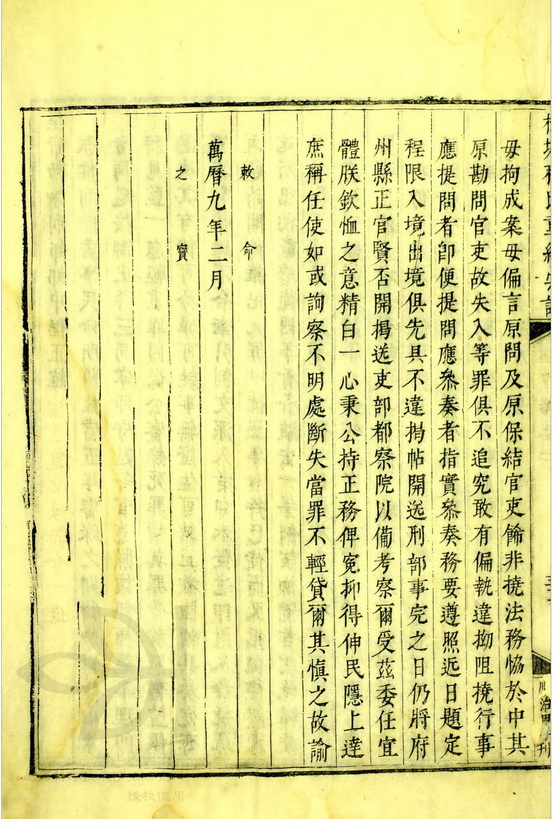 毋拘成案毋偏言原問及原保結官吏餙非撓法務恊於中其
原勘問官吏故失入等罪俱不追究敢有偏執違拗阻撓行事
應提問者即便提問應叅奏者指實叅奏務要遵照近日題定
程限入境出境俱先具不違揭帖開送刑部事完之日仍將府
州縣正官賢否開揭送吏部都察院以備考察爾受茲委任宜
體朕欽恤之意精白一心秉公持正務俾冤抑得伸民隱上達
庶稱任使如或詢察不明處斷失當罪不輕貸爾其慎之故諭
敕命
萬曆九年二月
之寶
授权使用